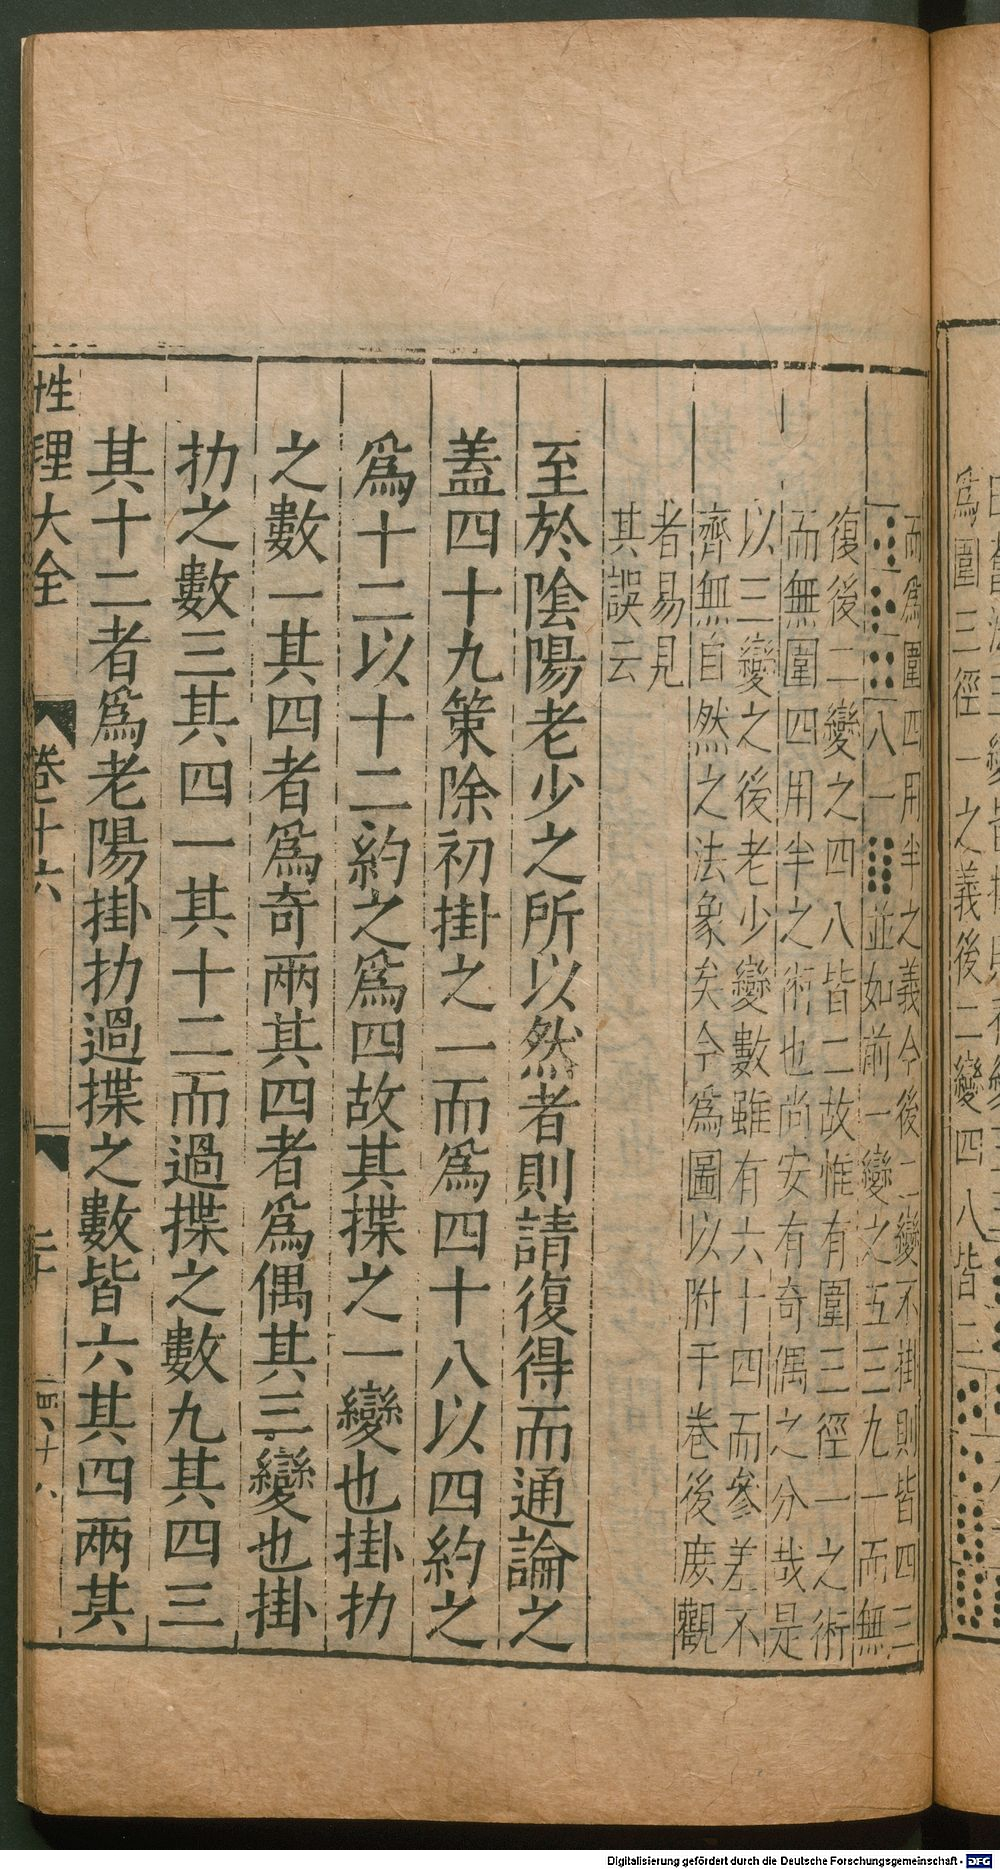 而爲圍四用半之義今後二變不掛則皆四三
八一 並如前一變之五三九一而無
復後二變之四八皆二故惟有圍三徑一之術
而無圍四用半之術也尚安有奇偶之分哉是
以三變之後老少變數雖有六十四而參差不
齊無自然之法象矣今爲圖以附于卷後庻觀
者易見
其誤云
至於陰陽老少之所以然者則請復得而通論之
蓋四十九策除初掛之一而爲四十八以四約之
爲十二以十二約之爲四故其揲之一變也掛扐
之數一其四者爲奇兩其四者爲偶其三變也掛
扐之數三其四一其十二而過揲之數九其四三
其十二者爲老陽掛扐過揲之數皆六其四兩其
性理大全 卷十六 二十
爲圍三徑一之義後二變四八皆二
Digitalisierung gefördert durch die Deutsche Forschungsgemeinschaft - DFG